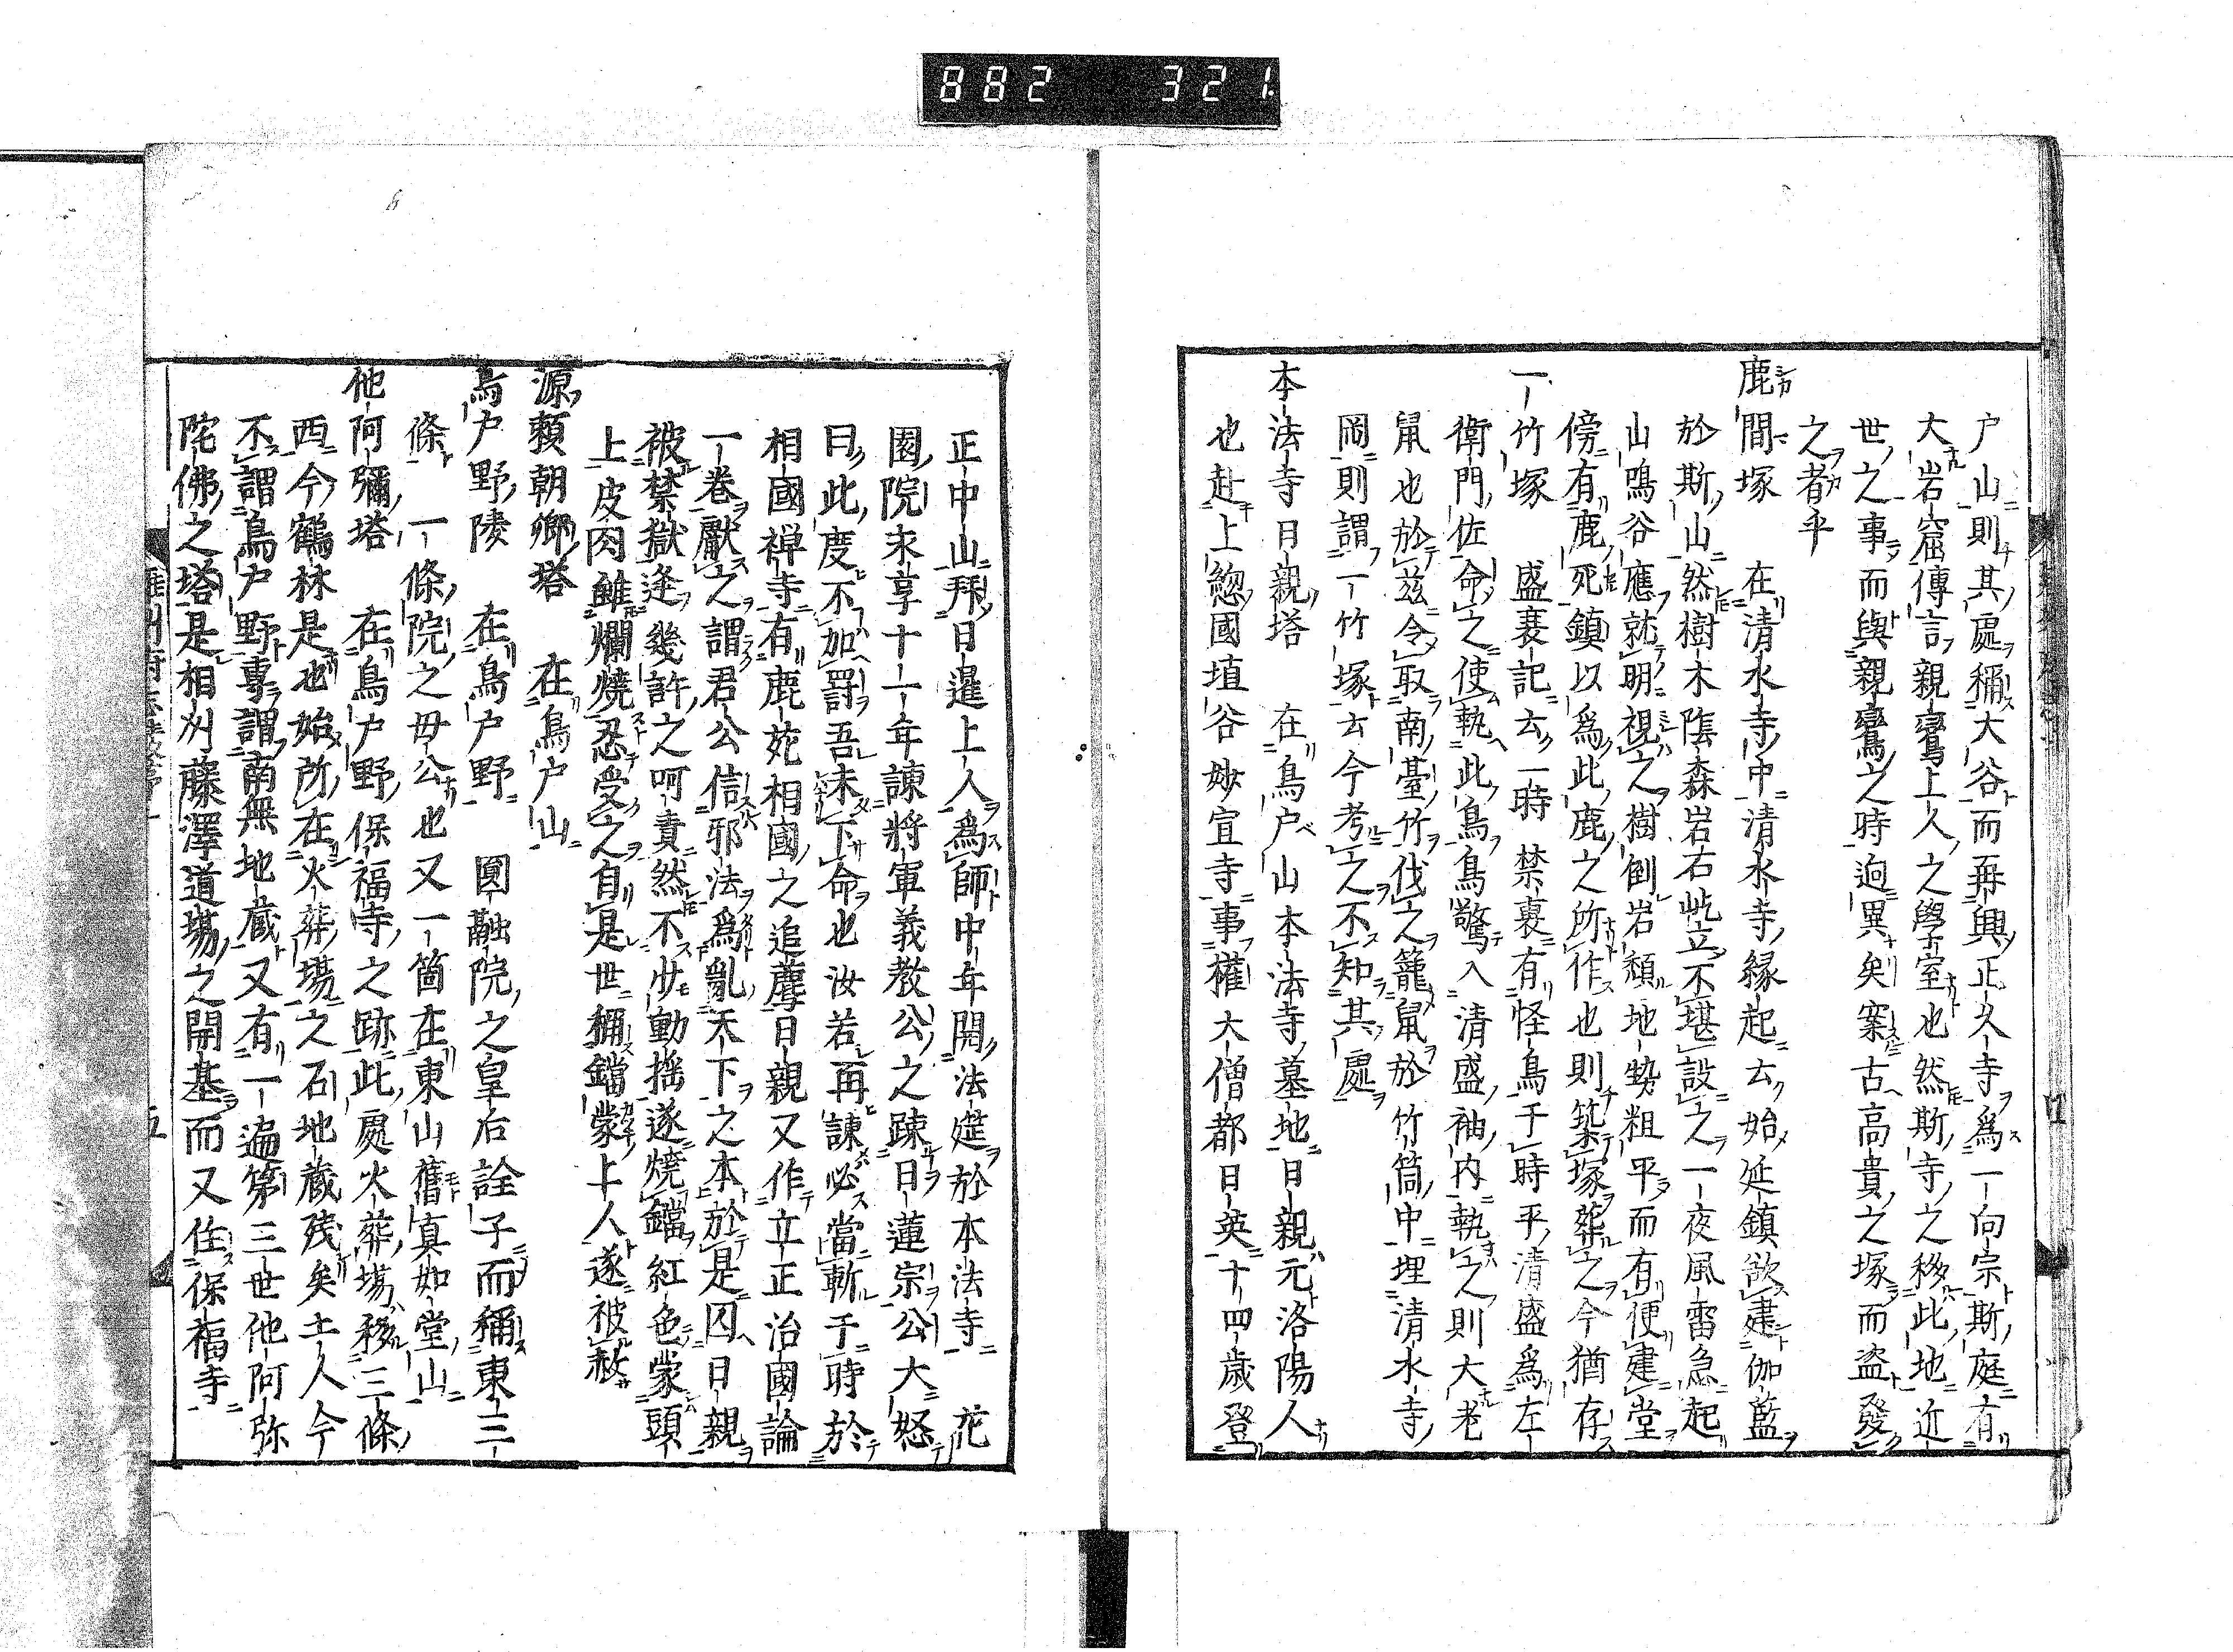 882 321
戸山則其處稱大谷而再興正久寺爲一向宗斯庭有
大岩窟傳言親鸞上人之學室也然斯寺之移此地近
世之事而與親鸞之時逈異矣案古高貴之塚而盗發
之者乎
鹿間塚 在清水寺中清水寺縁起云始延鎮欲建伽藍
於斯山然樹木陰森岩石屹立不堪設之一夜風雷急起
山鳴谷應就明視之樹倒岩頽地勢粗平而有便建堂
傍有鹿死鎮以爲此鹿之所作也則築塚葬之今猶存
一竹塚 盛衰記云一時 禁裏有怪鳥于時平清盛爲左
衛門佐命之使執此鳥鳥驚入清盛袖内執之則大老
鼠也於茲令取南臺竹伐之籠鼠於竹筒中埋清水寺
岡則謂一竹塚云今考之不知其處
本法寺日親塔 在鳥戸山本法寺墓地日親元洛陽人
也赴上緫國埴谷妙宣寺事權大僧都日英十四歳登
正中山拜日暹上人爲師中年開法筵於本法寺 花
園院末享十一年諫將軍義教公之疎日蓮宗公大怒
曰此度不加罸吾未下命也汝若再諫必當斬于時於
相國禅寺有鹿苑相國之追薦日親又作立正治國論
一卷獻之謂君公信邪法爲亂天下之本於是囚日親
被禁獄逢幾許之呵責然不少動揺遂燒鐺紅色蒙頭
上皮肉雖爛燒忍受之自是世稱鐺蒙上人遂被赦
源頼朝卿塔 在鳥戸山
鳥戸野陵 在鳥戸野 圓融院之皇后詮子而稱東三
條 一條院之毋公也又一箇在東山舊真如堂山
他阿彌塔 在鳥戸野保福寺之跡此處火葬場移三條
西今鶴林是也始所在火葬場之石地蔵残矣土人今
不謂鳥戸野專謂南無地蔵又有一遍第三世他阿弥
陀佛之塔是相刕藤澤道場之開基而又住保福寺